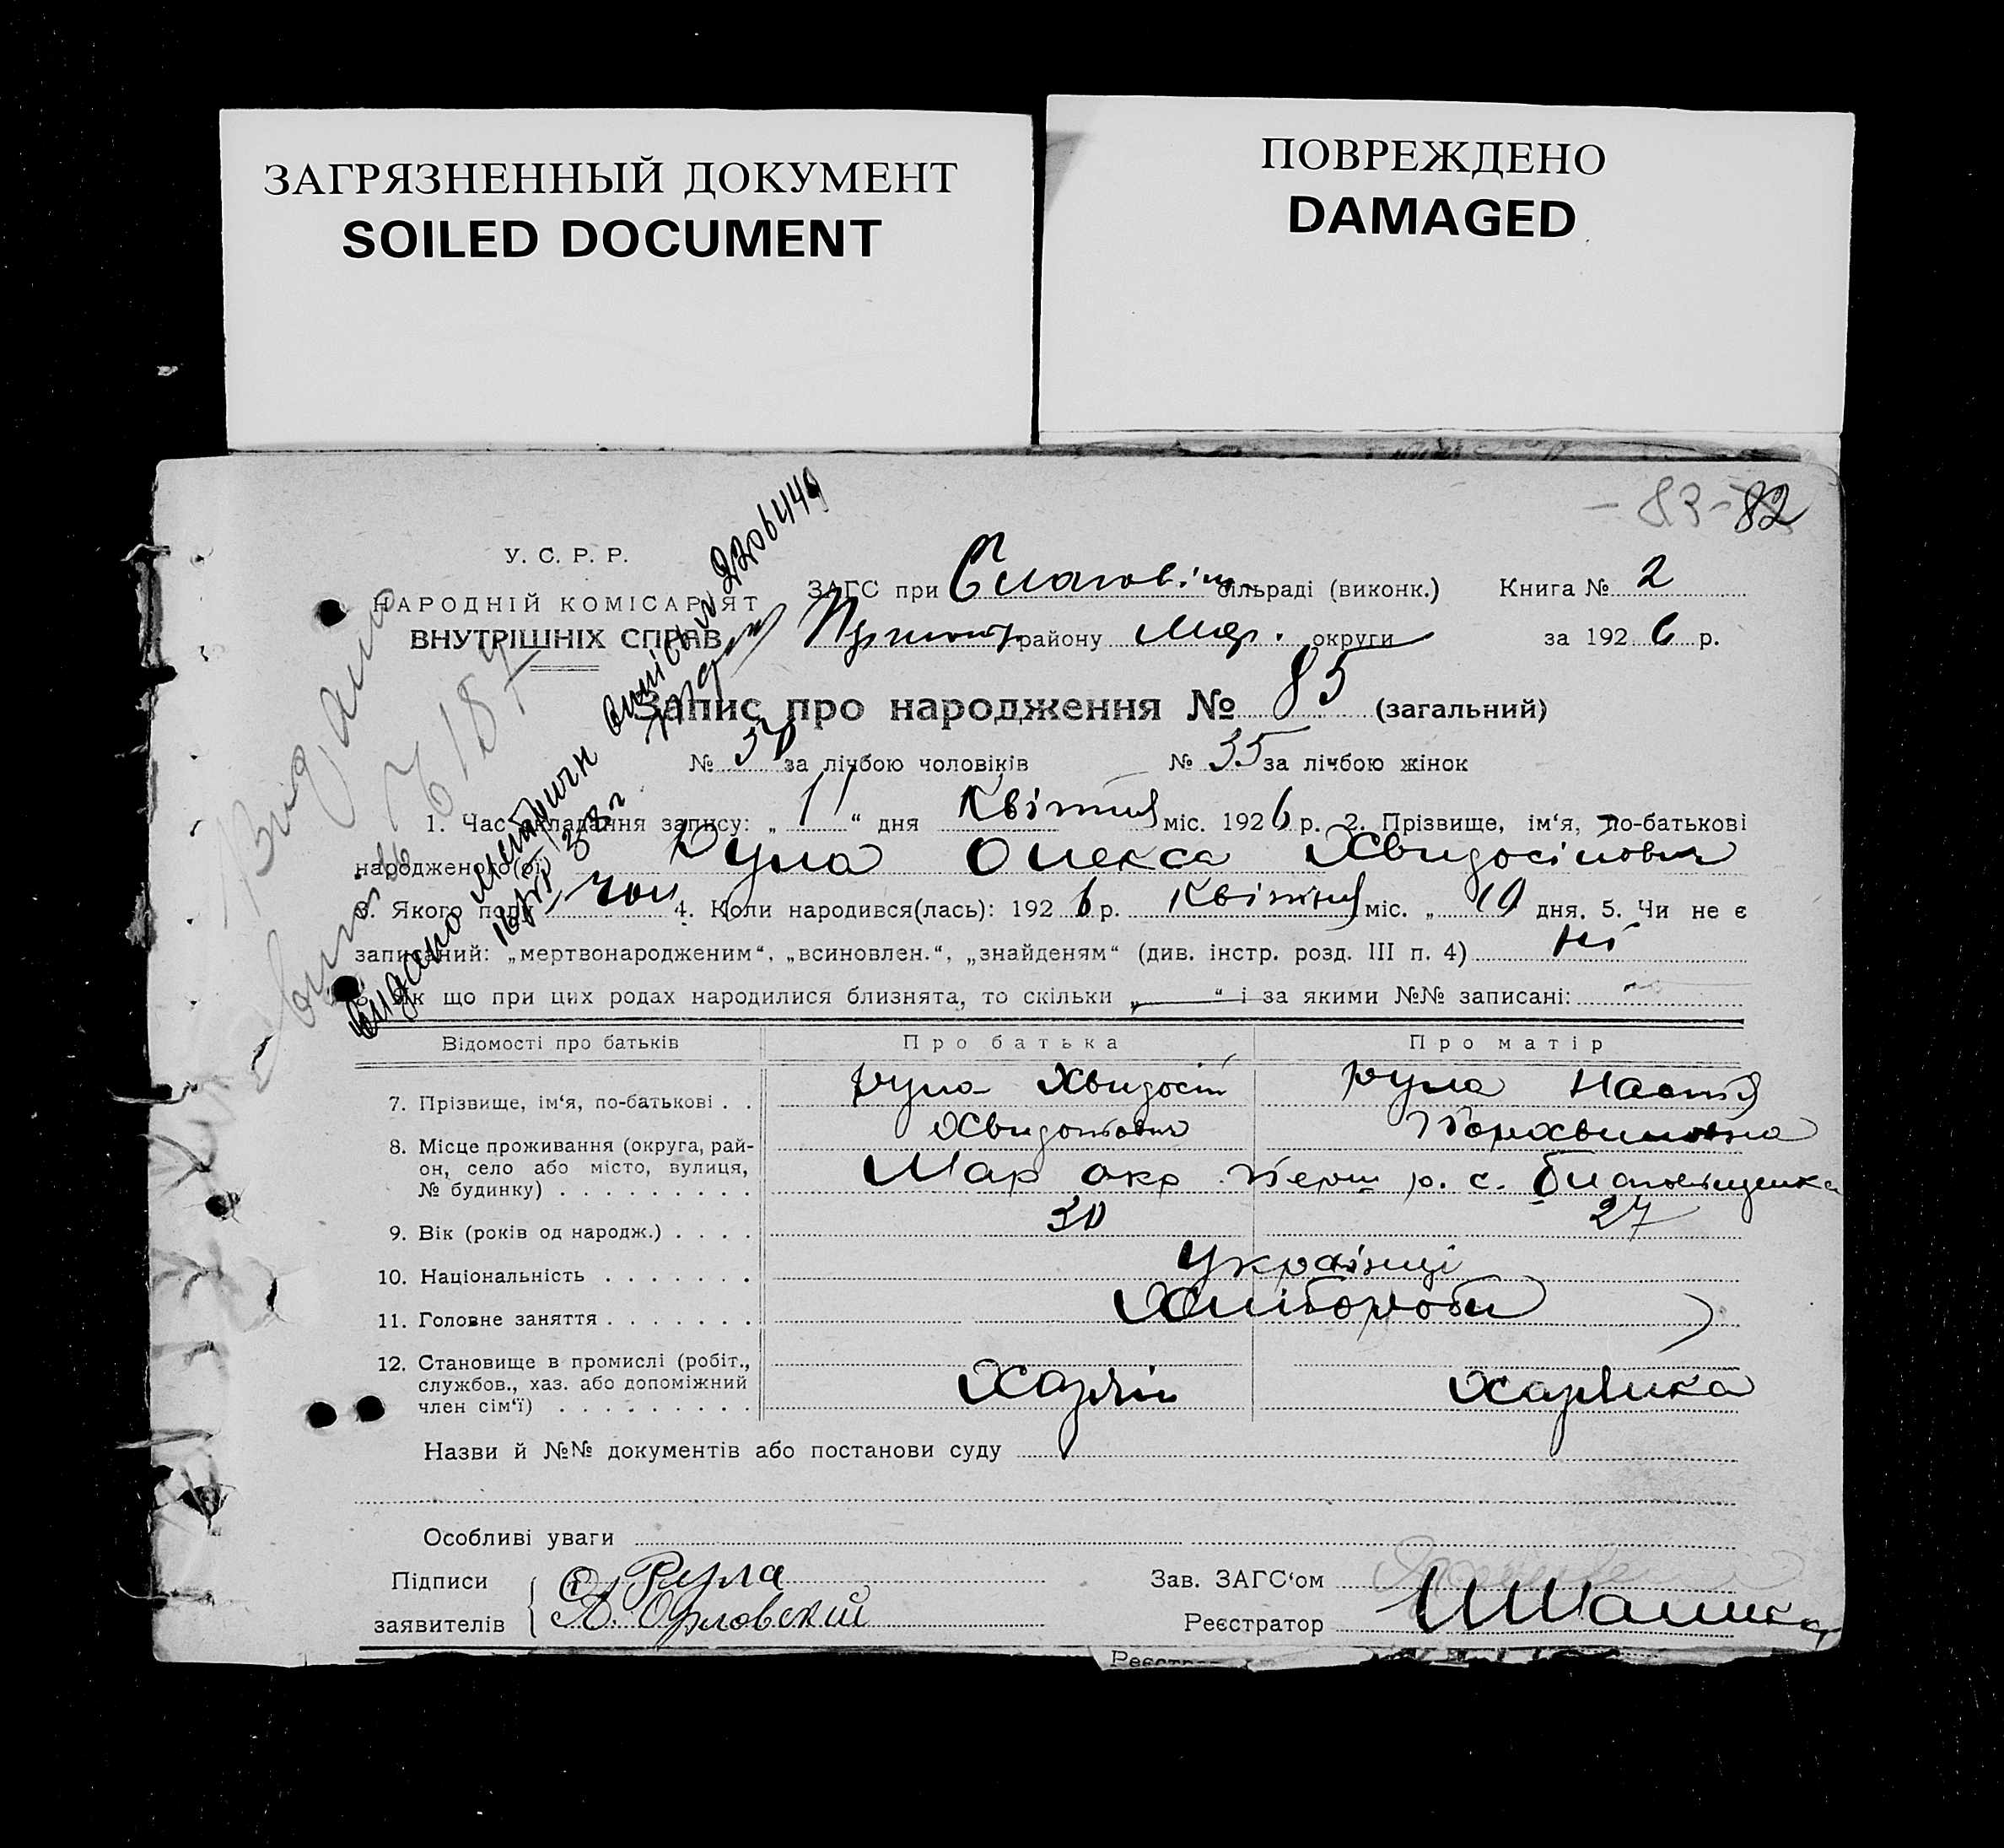 ЗАГРЯЗНЕННЫЙ ДОКУМЕНТ
SOILED DOCUMENT
ПОВРЕЖДЕНО
DAMAGED
-83- 82
У. С. Р. Р.
НАРОДНІЙ КОМІСАРІЯТ
ВНУТРІШНІХ СПРАВ
ЗАГС при сільраді (виконк.) Книга № 2
району Мар. округи за 1926 р.
Запис про народження № 85 (загальний)
№ 50 за лічбою чоловіків № 35 за лічбою жінок
1. Час складання запису: „11“ дня Квітня міс. 1926 р. 2. Прізвище, ім‘я, по-батькові
народженого(ої) Рула Олекса Хвидосійович
3. Якого полу чол 4. Коли народився(лась): 1926 р. Квітня міс. „10 дня. 5. Чи не є
записаний: „мертвонародженим“, „всиновлен.“, „знайденям“ (див. інстр. розд. III п. 4) ні
6. Як що при цих родах народилися близнята, то скільки „—“ і за якими №№ записані:
Відомості про батьків Про батька Про матір
7. Прізвище, ім‘я, по-батькові . . Рула Хвидосій Рула Настя
8. Місце проживання (округа, рай-
он, село або місто, вулиця,
№ будинку) . . . . . . . . . Мар окр Перш р. с.
9. Вік (років од народж.) . . . . 30 27
10. Національність . . . . . . . Українці
11. Головне заняття . . . . . . . Хлібороби
12. Становище в промислі (робіт.,
службов., хаз. або допоміжний
член сім‘ї) . . . . . . . . . Хазяїн Хазяйка
Назви й №№ документів або постанови суду
Особливі уваги
Підписи Рула Зав. ЗАГС‘ом
заявителів А. Орловский Реєстратор
Видано
Видано метричн виписи № 2206449